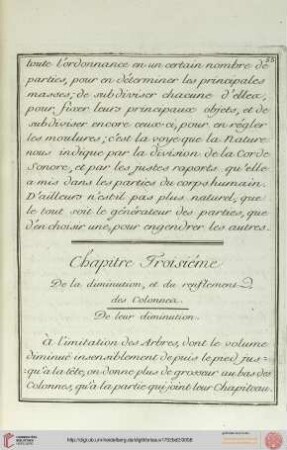 23
toute l'ordonnance en un certain nombre de
parties, pour en déterminer les principales
masses; de subdiviser chacune d'elles
pour fixer leurs principaux objets, et de
subdiviser encore ceux-ci, pour en régler
les moulures; c'est la voye que la Nature
nous indique par la division de la Corde
Sonore, et par les justes raports qu'elle
a mis dans les parties du corps humain.
D'ailleurs n'est-il pas plus naturel, que
le tout soit le générateur des parties, que
d'en choisir une, pour engendrer les autres.
Chapitre Troisiéme
De la diminution, et du renflement
des Colonnes.
De leur diminution.
À l'imitation des Arbres, dont le volume
diminuë insensiblement depuis le pied jus=
=qu'à la tête, on donne plus de grosseur au bas des
Colonnes, qu'à la partie qui joint leur Chapiteau.